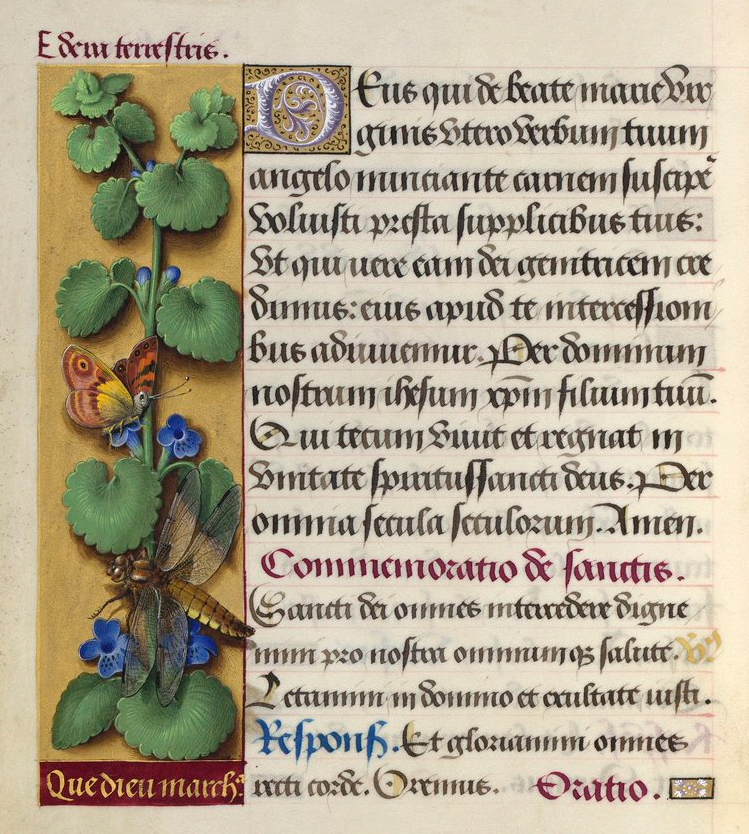 Edera terrestris.
Deus qui de beate marie vir
ginis vtero verbum tuum
angelo nunciante carnem suscipe᷑
voluisti presta supplicibus tuis:
Vt qui uere eam dei genitricem cre
dimus: eius apud te intercessioni
bus adiuuemur. Per dominum
nostrum ihesum xp̄m filium tuū.
Qui tecum viuit et regnat in
vnitate spiritussancti deus. Per
omnia secula seculorum. Amen.
Commemoratio de sanctis.
Sancti dei omnes intercedere digne
mini pro nostra omniumqз salute.
Letamini in domino et exultate iusti.
Respons. Et gloriamini omnes
recti corde. Oremus. Oratio.
Que dieu march